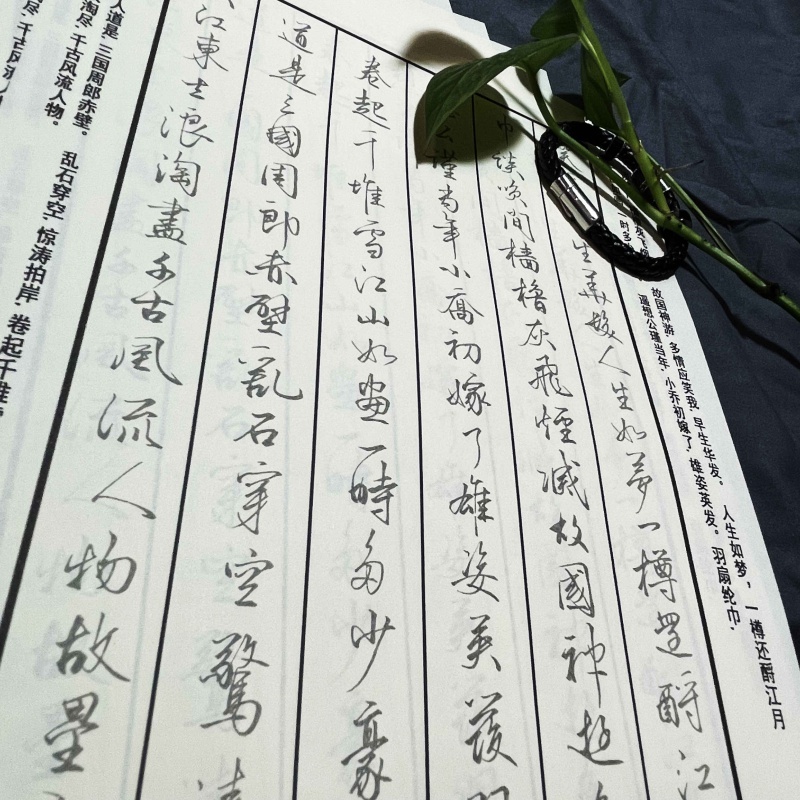 淘尽、千古风流人物。
人道是 三国周郎赤壁。 乱石穿空 惊涛拍岸 卷起千堆
江東去浪淘盡千古風流人物故壘
道是三國周郎赤壁亂石穿空驚
卷起千堆雪江山如畫一時多少豪
公瑾當年小喬初嫁了雄姿英發羽
巾談笑間檣櫓灰飛煙滅故國神遊
生華髮人生如夢一樽還酹江
一时多
遥想公瑾当年 小乔初嫁了 雄姿英发。 羽扇纶巾
故国神游 多情应笑我 早生华发。 人生如梦，一樽还酹江月